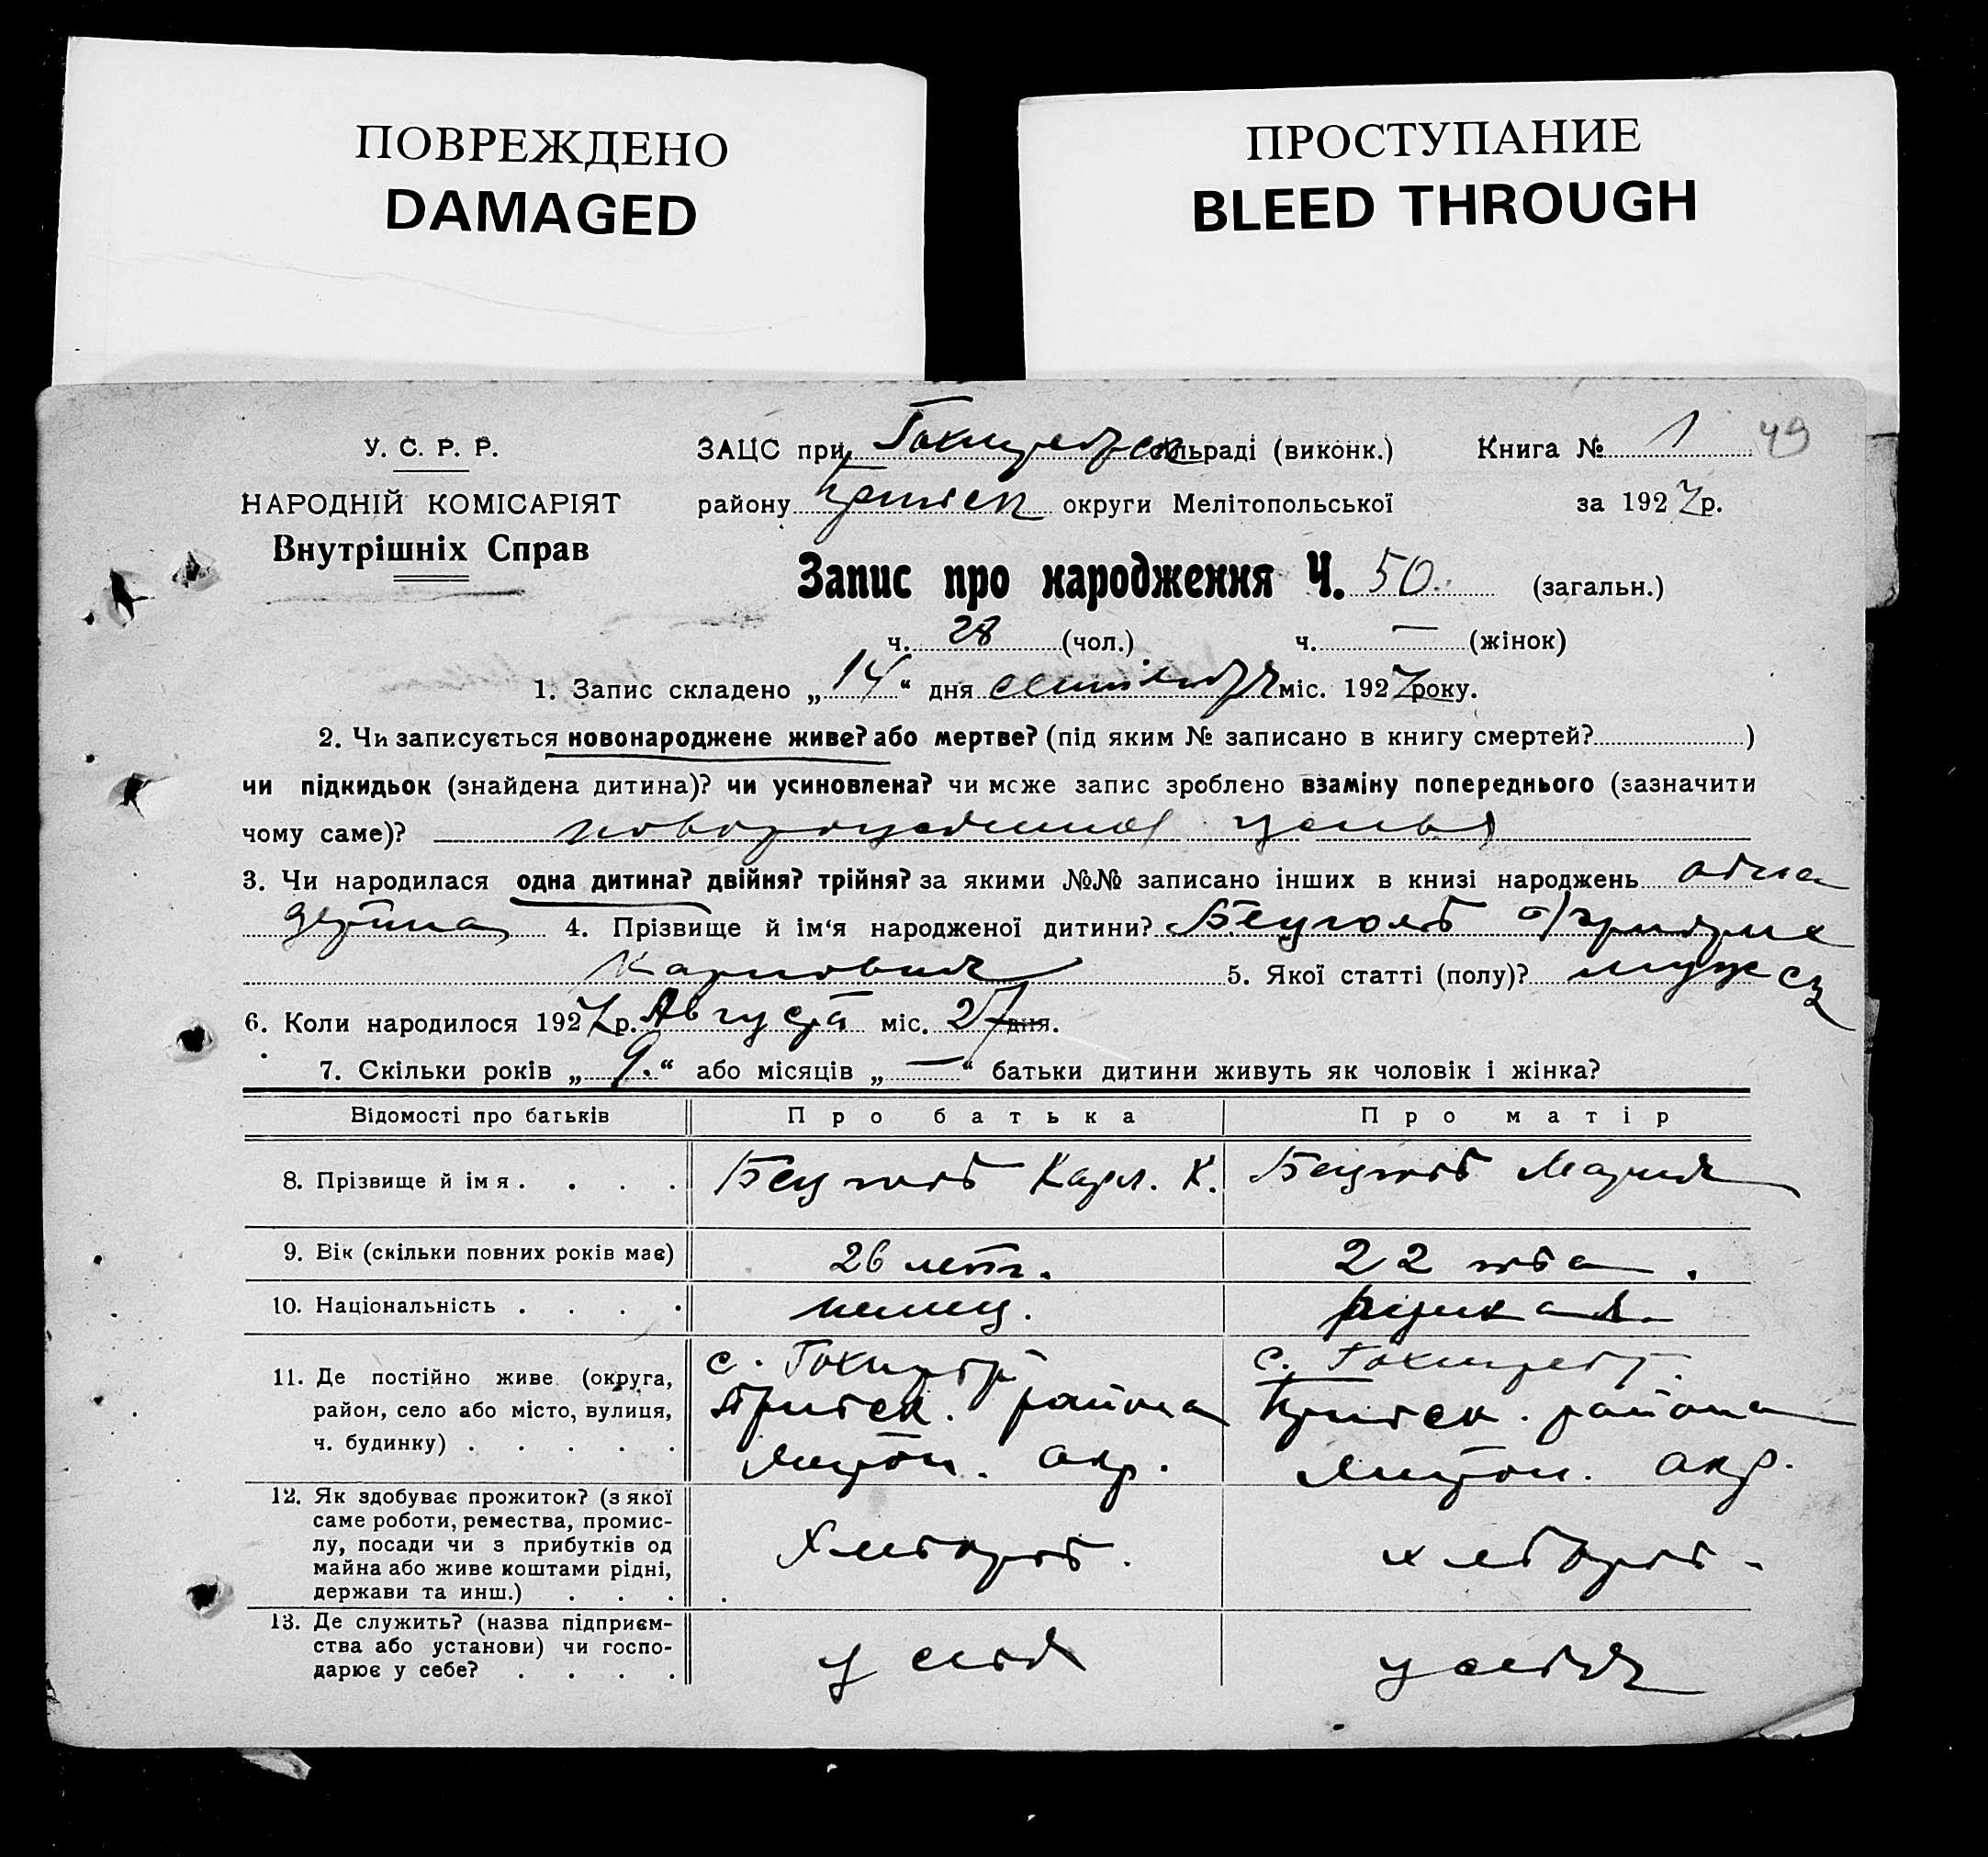 ПОВРЕЖДЕНО
DAMAGED
ПРОСТУПАНИЕ
BLEED THROUGH
У. С. Р. Р.
НАРОДНІЙ КОМІСАРІЯТ
Внутрішніх Справ
ЗАЦС при сільраді (виконк.) Книга № 1 49
району округи Мелітопольської за 1927 р.
Запис про народження Ч. 50. (загальн.)
ч. 28 (чол.) ч. — (жінок)
1. Запис складено „14“ дня сентября міс. 1927 року.
2. Чи записується новонароджене живе? або мертве? (під яким № записано в книгу смертей? )
чи підкидьок (знайдена дитина)? чи усиновлена? чи може запис зроблено взаміну попереднього (зазначити
чому саме)?
3. Чи народилася одна дитина? двійня? трійня? за якими №№ записано інших в книзі народжень одна
дитина 4. Прізвище й ім‘я народженої дитини?
Карлович 5. Якої статті (полу)? мужск
6. Коли народилося 1927 р. Августа міс. 27 дня.
7. Скільки років „9.“ або місяців „—“ батьки дитини живуть як чоловік і жінка?
Відомості про батьків Про батька Про матір
8. Прізвище й імя . . . . Карл. К. Мария
9. Вік (скільки повних років має) 26 лет. 22 лета.
10. Національність . . . . немец.
11. Де постійно живе (округа, с.
район, село або місто, вулиця, района района
ч. будинку) . . . . . окр. окр.
12. Як здобуває прожиток? (з якої
саме роботи, ремества, промис-
лу, посади чи з прибутків од Хлебороб. хлебороб.
майна або живе коштами рідні,
держави та инш.) . . . .
13. Де служить? (назва підприєм-
ства або установи) чи госпо- у себя у себя
дарює у себе? . . . .